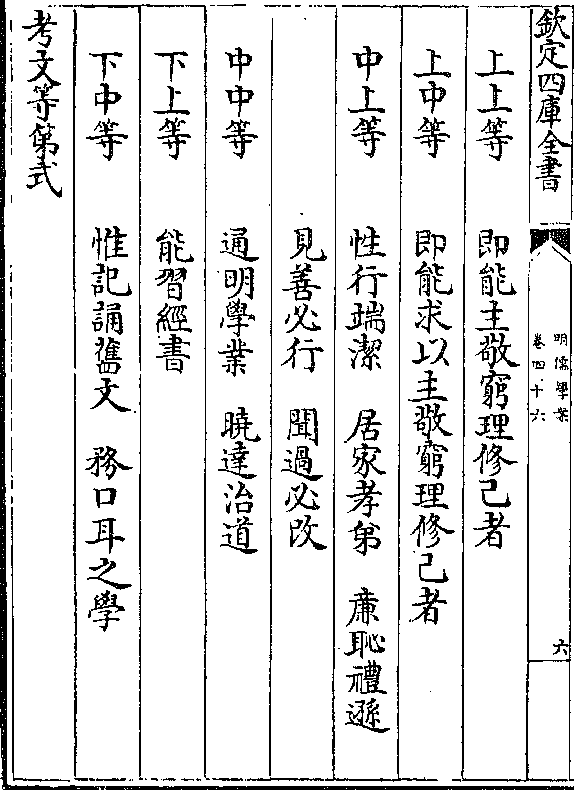 欽定四庫全書
明儒學案
卷四十六
六
上上等 即能主敬窮理修己者
上中等 即能求以主敬窮理修己者
中上等 性行端潔 居家孝弟 亷恥禮遜
見善必行 聞過必改
中中等 通明學業 曉達治道
下上等 能習經書
下中等 惟記誦舊文 務口耳之學
考文等第式